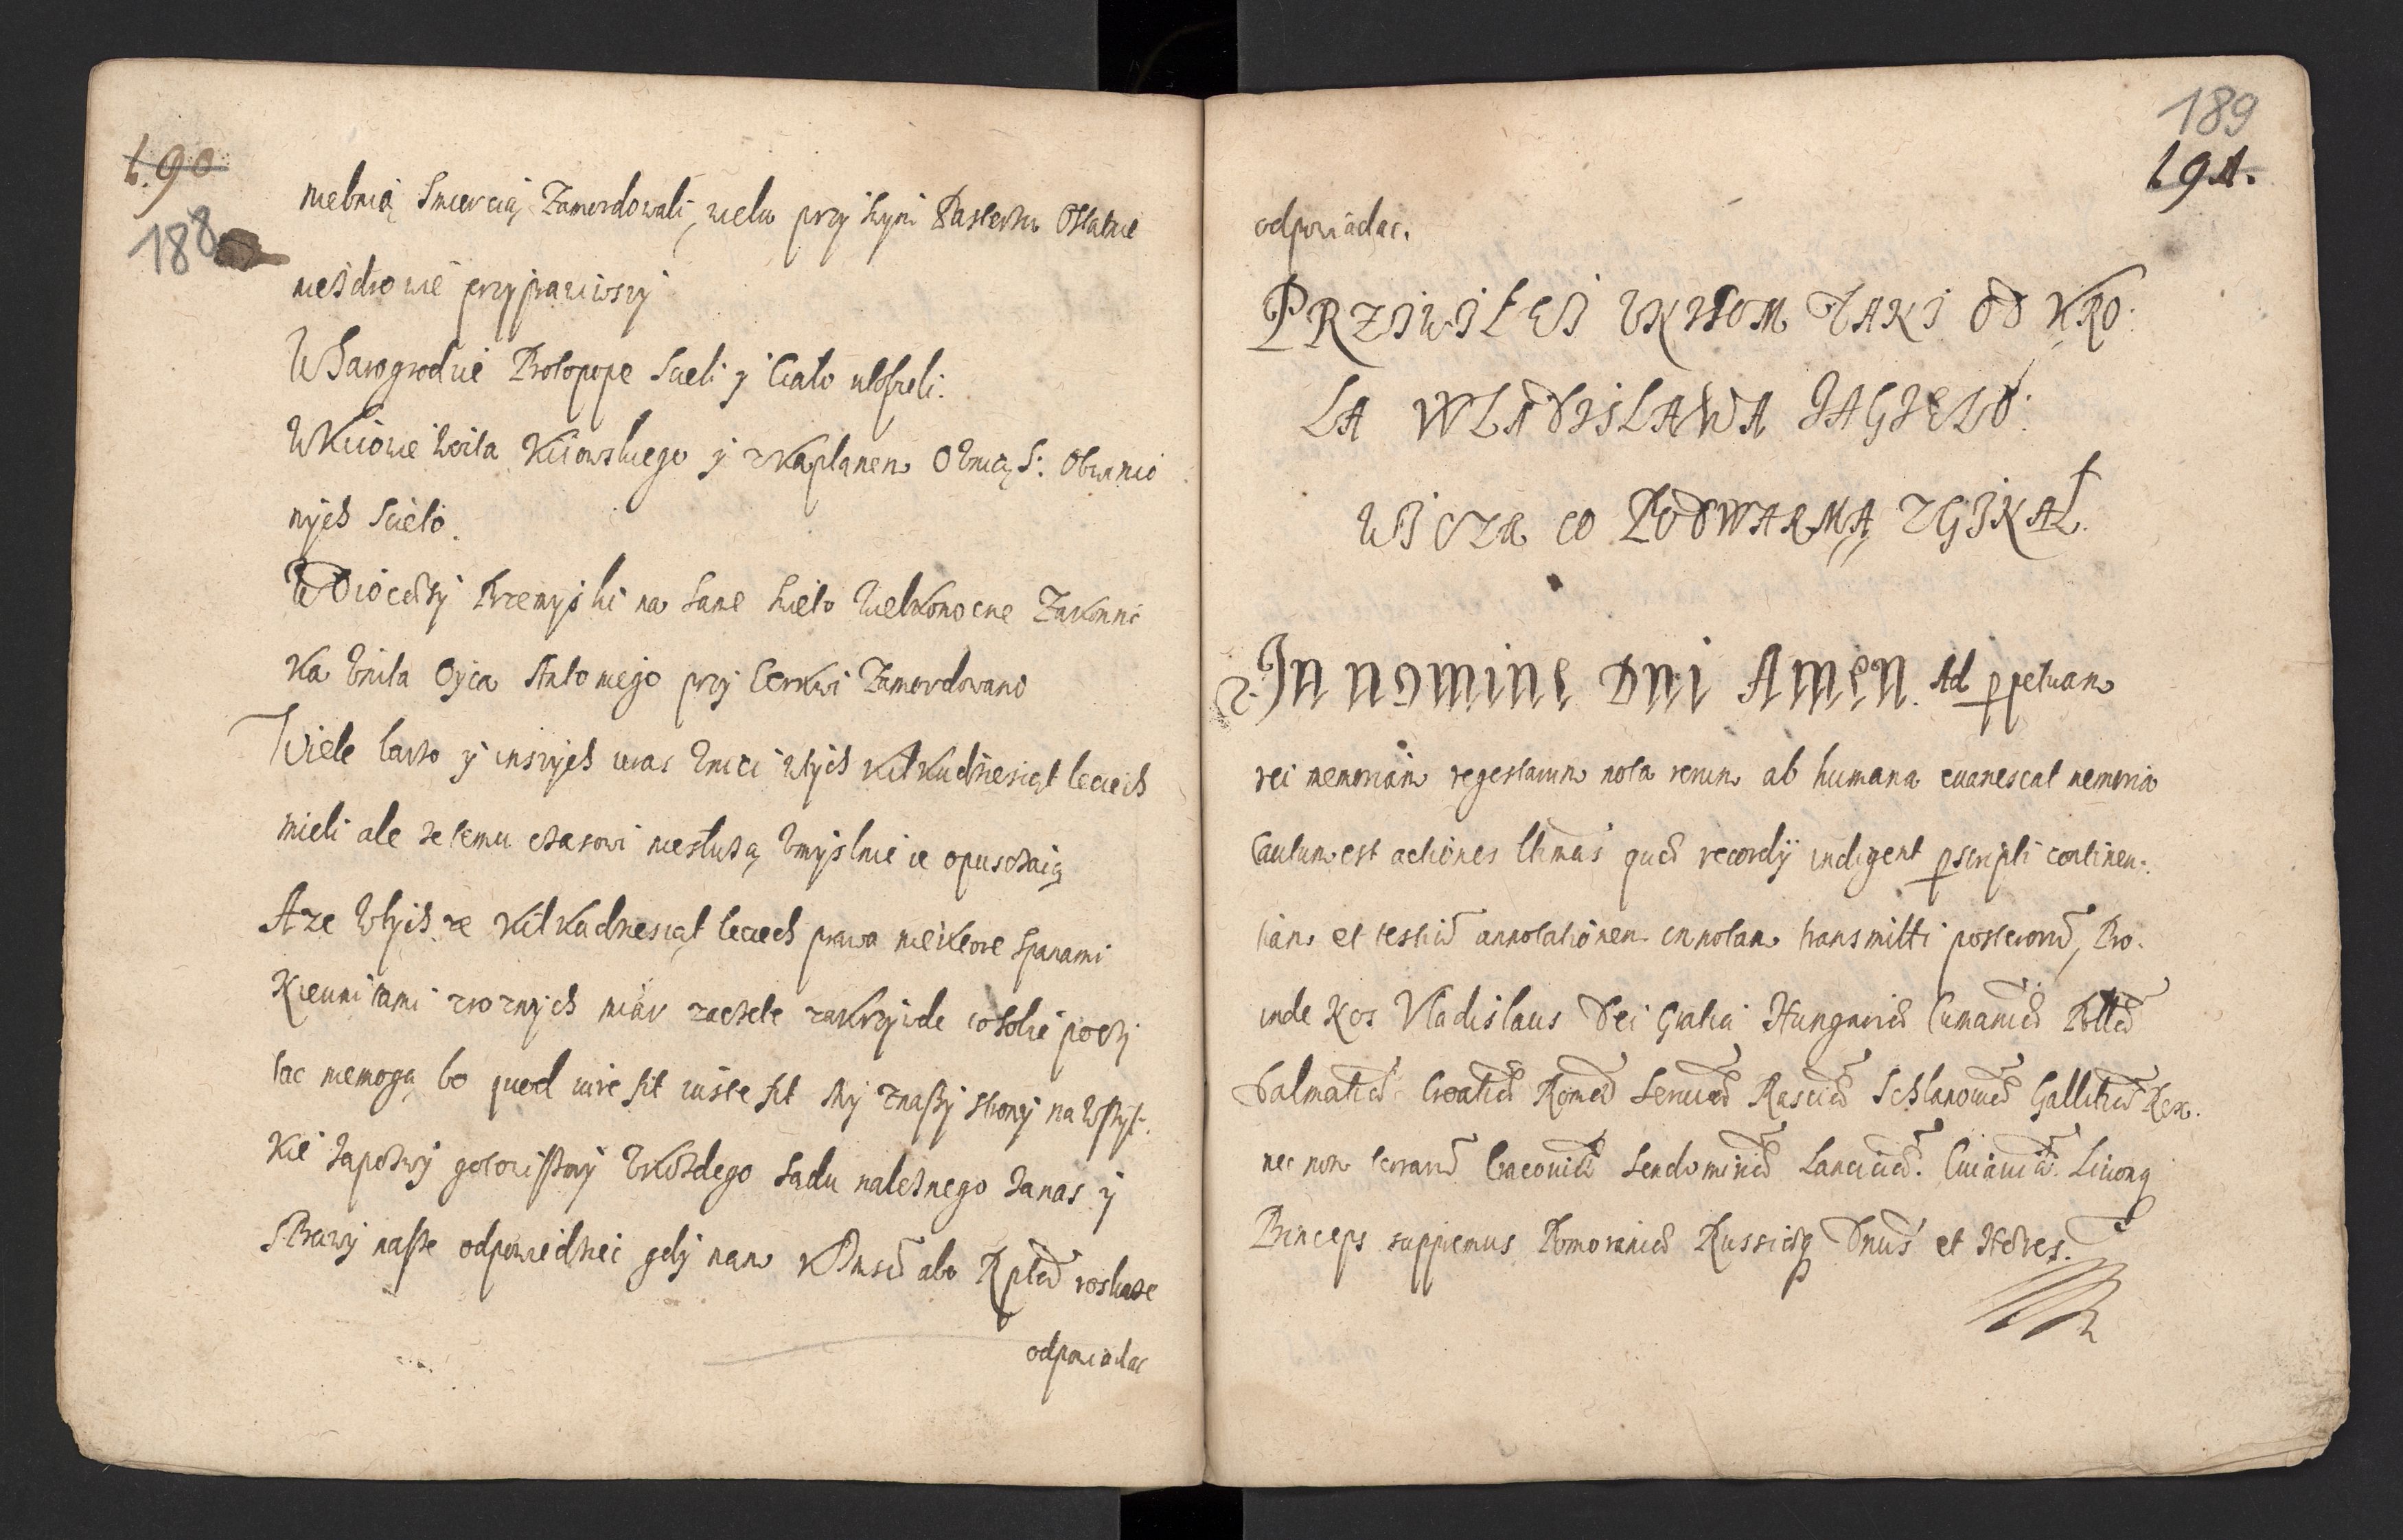 190
188
niebnią Smiercią Zamordowali, wielu przy tym Pasterzu Ostatnie
niezdrowie przyprawiwszy
W Sarogrodzie Protopope Scieli y Ciało
W Kiiowie Woita Kiiowskiego y z Kaplanem O Unią S:
nych Scieto.
W Diocezy Przemyski na same Swieto Wielkonocne Zakonni
ka Unita Oyca Antoniego przy Cerkwi Zamordowano
Wiele barzo y inszych uraz Unici w tych kilkudziesiąt leciech
mieli ale ze temu czasowi niesłużą Umyslnie ie opuszczaią
A ze w tych ze kilkadziesiąt leciech prawa niektore Spanami
Nieunitami z roznych miar zaczete za krzywde to sobie poczy
tac niemogą bo quod iure fit iuste fit My z naszy strony na wszyst.
kie zapozwy gotowiszmy U kożdego Sadu należnego zanas y
Sprawy nasze odpowiedziec gdy nam roskaze
odpowiadac
189
191.
odpowiadac.
PRZIWILEI UNITOM TAKI OD KRO:
LA WLADISLAWA IAGIELO:
WICZA CO POD WARNĄ ZGINAŁ.
In nomine Dni Amen. Ad ppetuam
rei memoriam regestarum nota rerum ab humana evanescat memoria
Cautum est actiones recordij indigent pscripti continen:
tiam et testium annotationem in notam transmitti posterorum, Pro.
inde Nos Vladislaus Dei Gratia Hungariae Cumaniae Polliae
Dalmatiae Croatiae Romae Serviae Rasciae Sclavoniae Gallitiae Rex.
nec non terrarum Cracoviae Sendomiriae Lanciciae. Cuiaviae. Livonq
Princeps suppremus Pomoraniae Russiaeq Dnus et Heres.